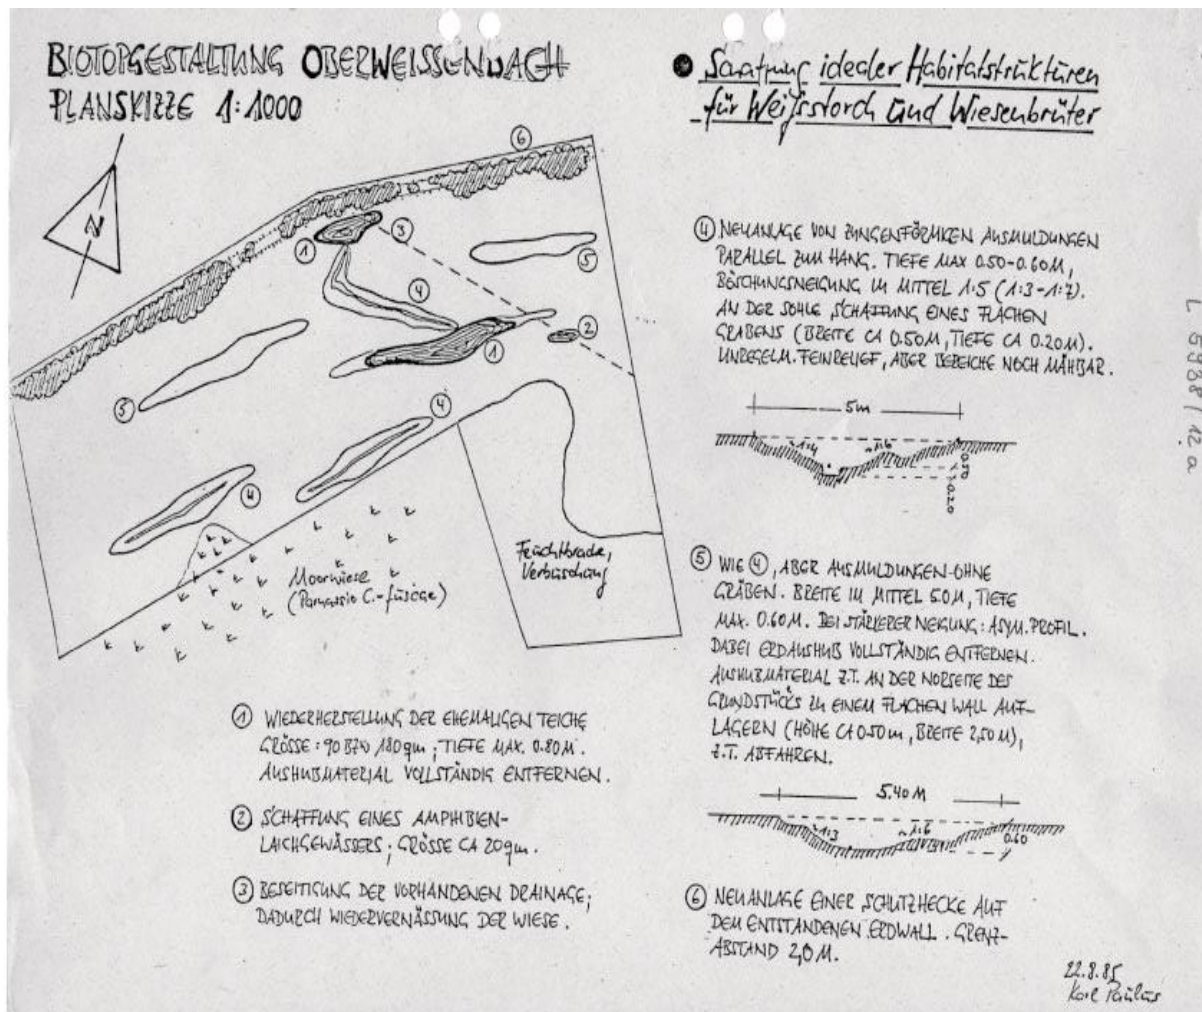 BIOTOPGESTALTUNG OBERWEISSENBACH
PLANSKIZZE 1:1000
● Schaffung idealer Habitatstrukturen
für Weißstorch und Wiesenbrüter
N
6
1
3
5
4
2
1
5
4
4
Feuchtbrache,
Verbuschung
Moorwiese
(Parnassio C.-fuscae)
① WIEDERHERSTELLUNG DER EHEMALIGEN TEICHE
GRÖSSE: 90 BZW 180qm; TIEFE MAX. 0.80M.
AUSHUBMATERIAL VOLLSTÄNDIG ENTFERNEN.
② SCHAFFUNG EINES AMPHIBIEN-
LAICHGEWÄSSERS; GRÖSSE CA 20qm.
③ BESEITIGUNG DER VORHANDENEN DRAINAGE;
DADURCH WIEDERVERNÄSSUNG DER WIESE.
④ NEUANLAGE VON ZUNGENFÖRMIGEN AUSMULDUNGEN
PARALLEL ZUM HANG. TIEFE MAX 0.50-0.60M,
BÖSCHUNGSNEIGUNG IM MITTEL 1:5 (1:3-1:7).
AN DER SOHLE SCHAFFUNG EINES FLACHEN
GRABENS (BREITE CA 0.50M, TIEFE CA 0.20M).
UNREGELM. FEINRELIEF, ABER BEREICHE NOCH MÄHBAR.
5m
~1:4
~1:6
0.50
0.20
⑤ WIE ④, ABER AUSMULDUNGEN OHNE
GRÄBEN. BREITE IM MITTEL 5.0M, TIEFE
MAX. 0.60M. BEI STÄRKERER NEIGUNG: ASYM. PROFIL.
DABEI ERDAUSHUB VOLLSTÄNDIG ENTFERNEN.
AUSHUBMATERIAL Z.T. AN DER NORSEITE DES
GRUNDSTÜCKS ZU EINEM FLACHEN WALL AUF-
LAGERN (HÖHE CA 0.50m, BREITE 2,50M),
Z.T. ABFAHREN.
5.40M
~1:3
~1:6
0.60
⑥ NEUANLAGE EINER SCHUTZHECKE AUF
DEM ENTSTANDENEN ERDWALL. GRENZ-
ABSTAND 2,0M.
22.8.85
Karl Paulus
L 5938/12a